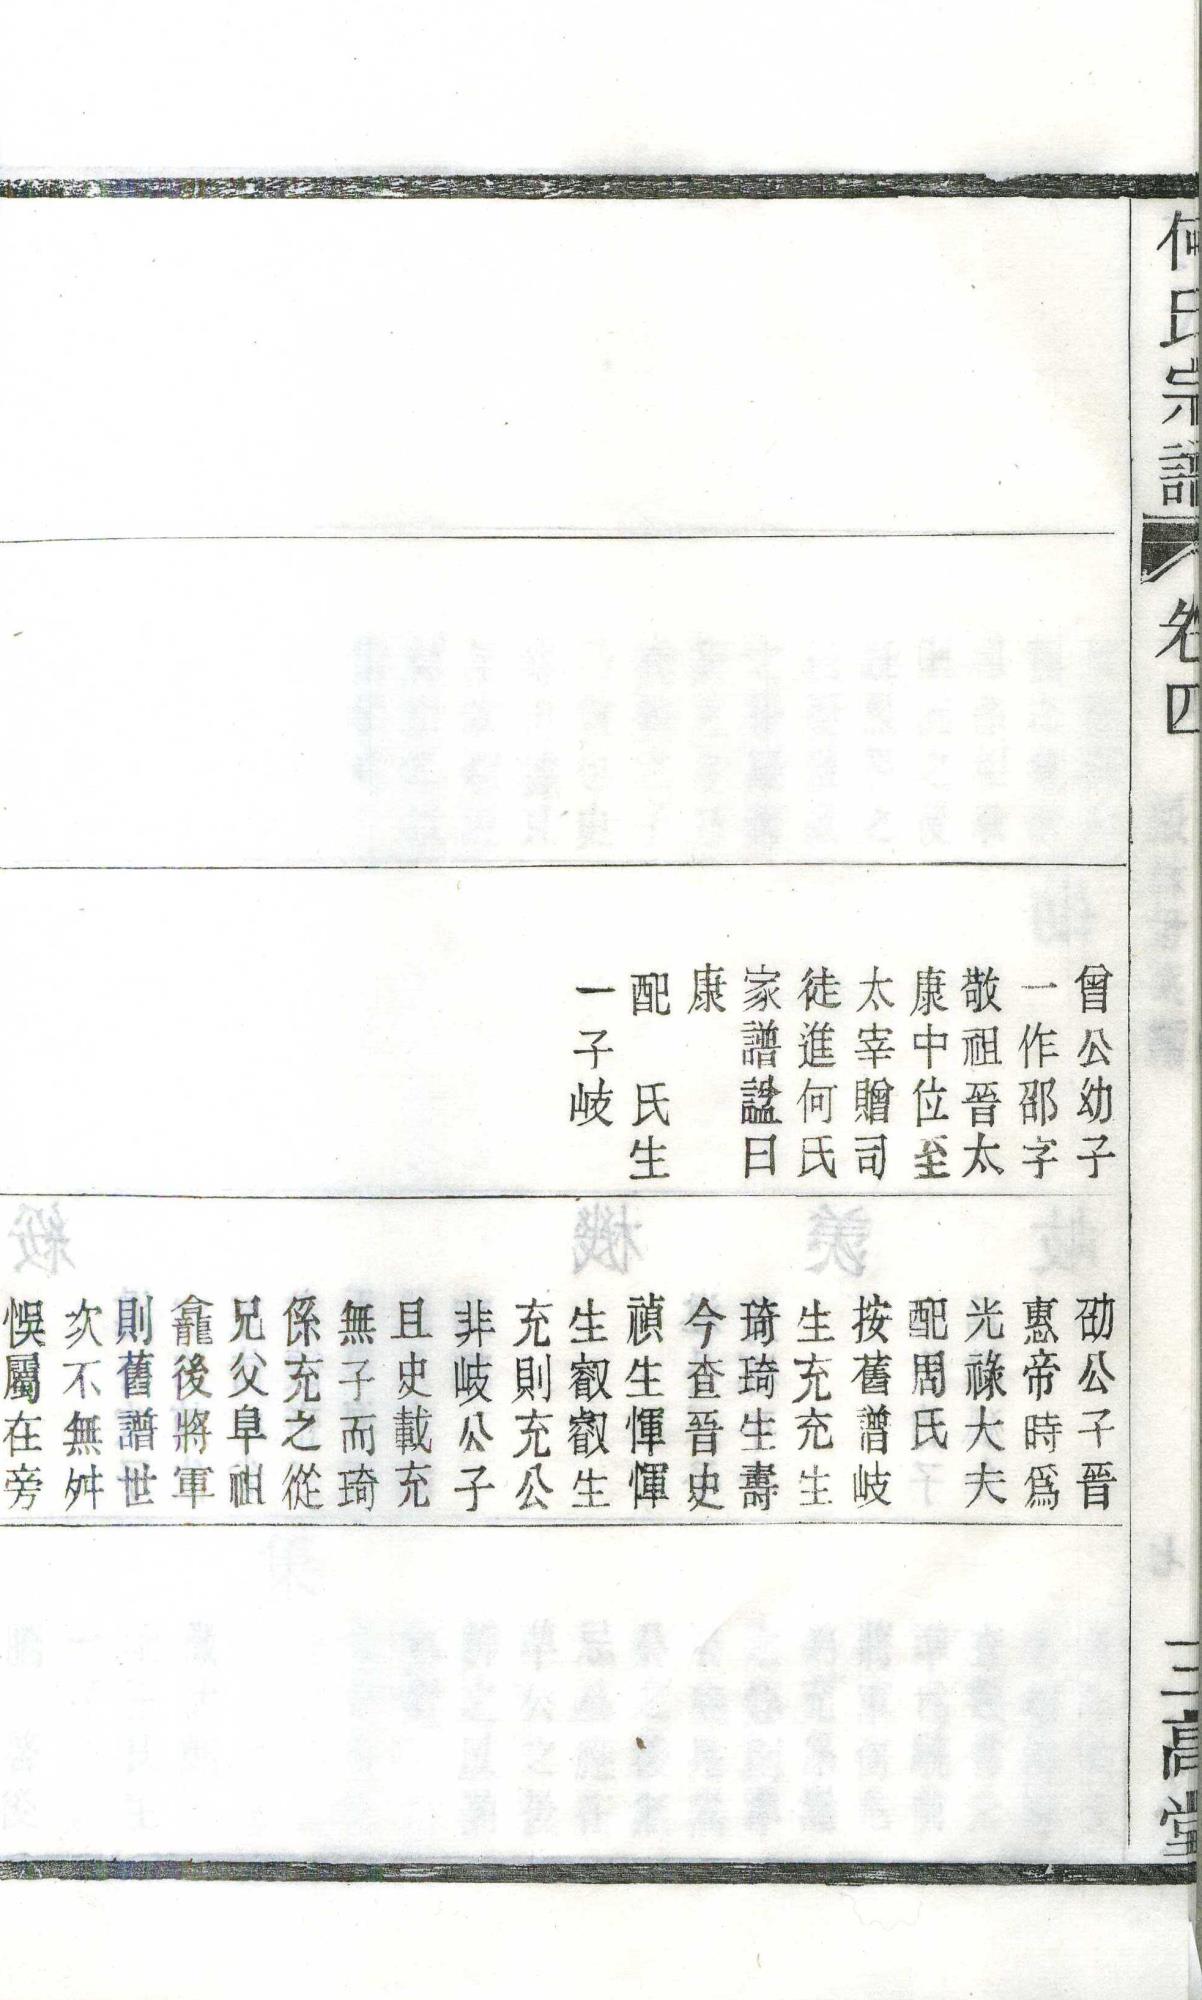 何氏宗譜
卷四
三高堂
曾公幼子
一作邵字
敬祖晉太
康中位至
太宰贈司
徒進何氏
家譜諡曰
康
配　氏生
一子岐
劭公子晉
惠帝時爲
光祿大夫
配周氏
按舊譜岐
生充充生
琦琦生壽
今查晉史
禎生惲惲
生叡叡生
充則充公
非岐公子
且史載充
無子而琦
係充之從
兄父阜祖
龕後將軍
則舊譜世
次不無舛
悞屬在旁